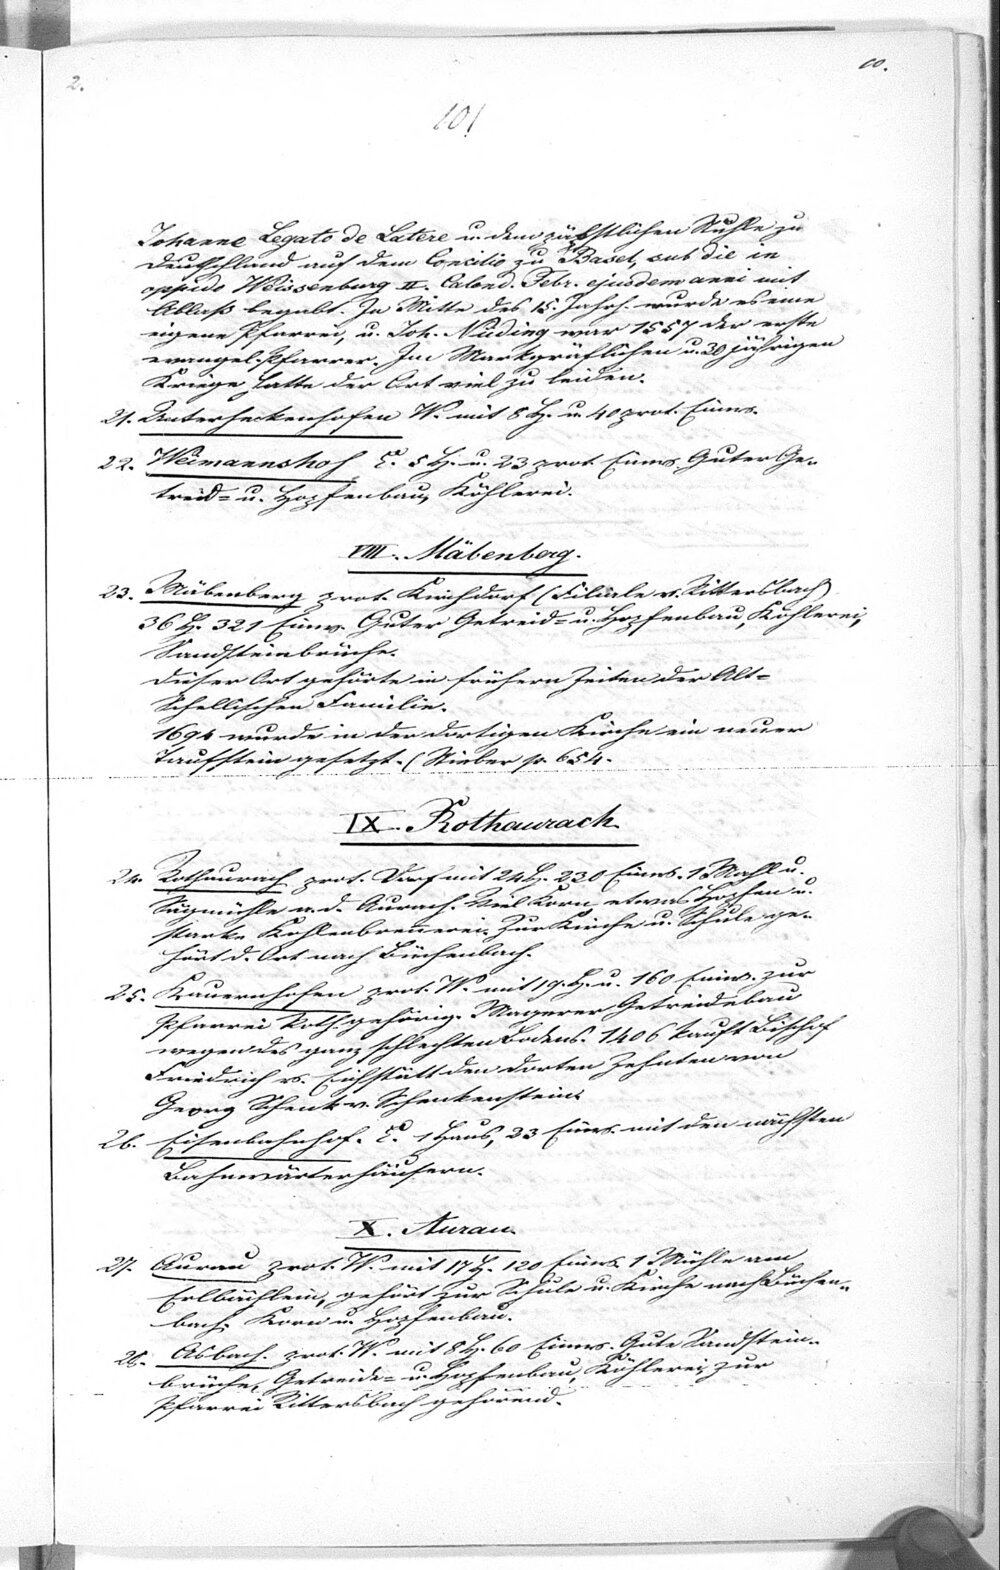 2.
10.
101
Johanne Legato de Latere u. dem päpstlichen Stuhle zu
Deutschland auf dem Concilio zu Basel, sub die in
oppido Weissenburg II. Calend. Febr. ejusdem anni mit
Ablaß begabt. In Mitte des 15. Jahrh. wurde es eine
eigene Pfarrei, u. Joh. Nüding war 1557 der erste
evangel. Pfarrer. Im Markgräflichen u. 30 jährigen
Kriege hatte der Ort viel zu leiden.
21. Unterheckenhofen W. mit 8 H. u. 40 prot. Einw.
22. Weimannshof E. 5 H. u. 23 prot. Einw. Guter Ge-
treid- u. Hopfenbau, Köhlerei.
VIII. Mäbenberg.
23. Mäbenberg prot. Kirchdorf (Filiale v. Rittersbach)
36 H. 321 Einw. Guter Getreid- u. Hopfenbau, Köhlerei,
Sandsteinbrüche.
Dieser Ort gehörte in frühern Zeiten der Alt-
Schellischen Familie.
1694 wurde in der dortigen Kirche ein neuer
Taufstein gesetzt. (Stieber p. 654.
IX. Rothaurach
24. Rothaurach prot. Dorf mit 24 H. 230 Einw. 1 Mahl u.
Sägmühle a. d. Aurach. Viel Korn, etwas Hopfen u.
starke Kohlenbrennerei. Zur Kirche u. Schule ge-
hört d. Ort nach Büchenbach.
25. Kauernhofen prot. W. mit 19. H. u. 160 Einw. zur
Pfarrei Roth gehörig. Magerer Getreidebau
wegen des ganz schlechten Bodens. 1406 kauft Bischof
Friedrich v. Eichstätt den dorten Zehnten von
Georg Schenk v. Schenkenstein.
26. Eisenbahnhof. E. 1 Haus, 33 Einw. mit den nächsten
Bahnwärterhäusern.
X. Aurau.
27. Aurau prot. W. mit 17 H. 120 Einw. 1 Mühle am
Erlbächlein, gehört zur Schule u. Kirche nach Büchen-
bach. Korn u. Hopfenbau.
28. Asbach. prot. W. mit 8 H. 60 Einw. Gute Sandstein-
brüche, Getreide- u. Hopfenbau, Köhlerei, zur
Pfarrei Rittersbach gehörend.